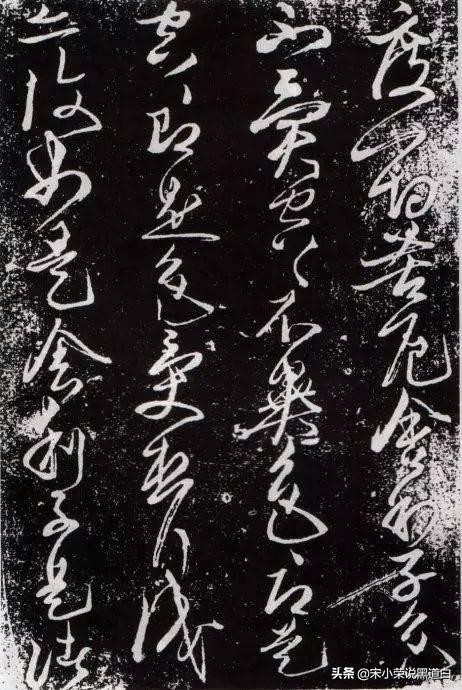 度一切苦厄舍利子色
不異空〻不異色〻即是
空〻即是色受想行識
亦復如是舍利子是諸
头条 @宋小荣说黑道白